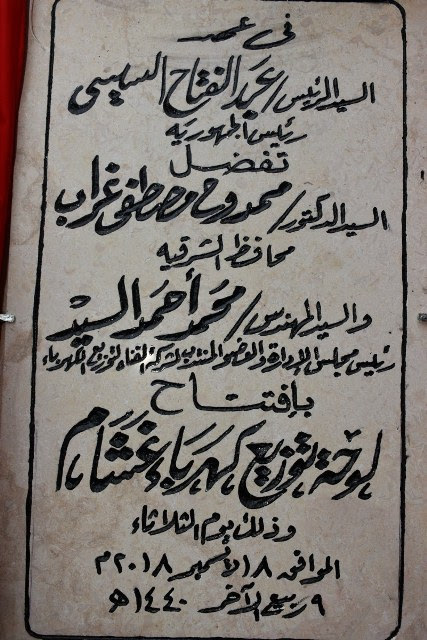 فى عهد
السيد الرئيس/ عبد الفتاح السيسى
رئيس الجمهوريه
تفضل
السيد الدكتور/ ممدوح مصطفى غراب
محافظ الشرقيه
والسيد المهندس/ محمد أحمد السيد
رئيس مجلس الإدارة والعضو المنتدب لشركة القناه لتوزيع الكهرباء
بإفتتاح
لوحة توزيع كهرباء غشام
وذلك يوم الثلاثاء
الموافق ١٨ ديسمبر ٢٠١٨م
٩ ربيع الآخر ١٤٤٠هـ